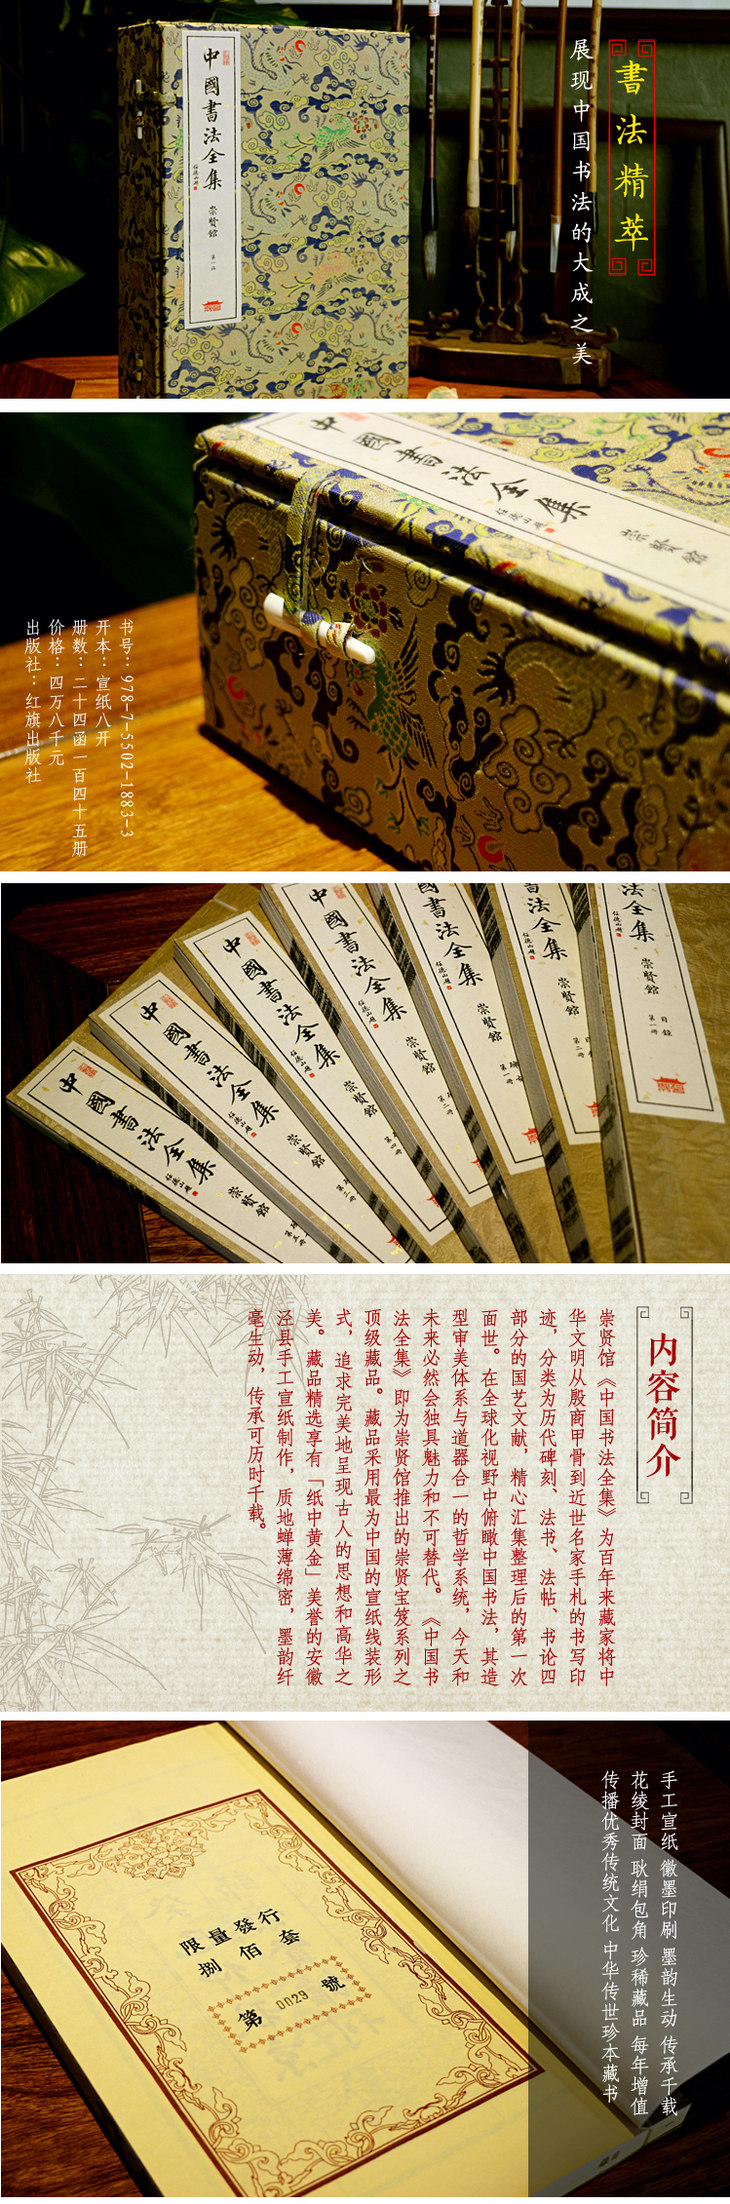 書法精萃
展现中国书法的大成之美
中國書法全集
任德山題
崇賢館
第一函
中國書法全集
任德山題
崇賢館
书号：978-7-5502-1883-3
开本：宣纸八开
册数：二十四函一百四十五册
价格：四万八千元
出版社：红旗出版社
書法全集
任德山題
崇賢館
目録
第一冊
國書法全集
任德山題
崇賢館
第二冊
國書法全集
任德山題
崇賢館
第一冊
中國書法全集
任德山題
崇賢館
第二冊
中國書法全集
任德山題
崇賢館
第四冊
中國書法全集
任德山題
崇賢館
第三冊
中國書法全集
任德山題
崇賢館
第五冊
内容简介
崇贤馆《中国书法全集》为百年来藏家将中
华文明从殷商甲骨到近世名家手札的书写印
迹，分类为历代碑刻、法书、法帖、书论四
部分的国艺文献，精心汇集整理后的第一次
面世。在全球化视野中俯瞰中国书法，其造
型审美体系与道器合一的哲学系统，今天和
未来必然会独具魅力和不可替代。《中国书
法全集》即为崇贤馆推出的崇贤宝笈系列之
顶级藏品。藏品采用最为中国的宣纸线装形
式，追求完美地呈现古人的思想和高华之
美。藏品精选享有「纸中黄金」美誉的安徽
泾县手工宣纸制作，质地蝉薄绵密，墨韵纤
毫生动，传承可历时千载。
手工宣纸 徽墨印刷 墨韵生动 传承千载
花绫封面 耿绢包角 珍稀藏品 每年增值
传播优秀传统文化 中华传世珍本藏书
限量發行
捌佰套
第 0029 號